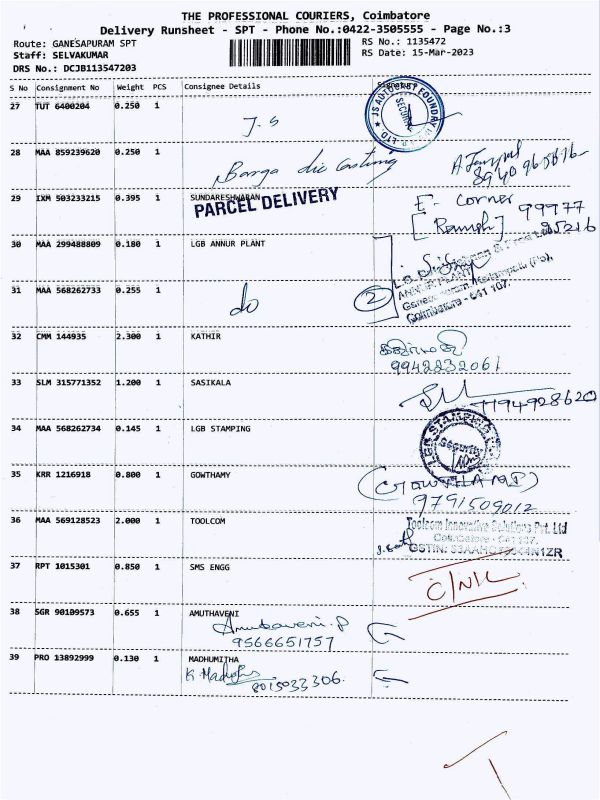 THE PROFESSIONAL COURIERS, Coimbatore
Delivery Runsheet - SPT - Phone No.:0422-3505555 - Page No.:3
Route: GANESAPURAM SPT
RS No.: 1135472
Staff: SELVAKUMAR
RS Date: 15-Mar-2023
DRS No.: DCJB113547203
S No Consignment No Weight PCS Consignee Details
27 TUT 6400204 0.250 1 J.S
JS AUTO CAST FOUNDRY
28 MAA 859239620 0.250 1
29 IXM 503233215 0.395 1 SUNDARESHWARAN
PARCEL DELIVERY
E- Corner
[Ramesh] 99977
30 MAA 299488809 0.180 1 LGB ANNUR PLANT
31 MAA 568262733 0.255 1 do
2
Coimbatore - 641 107.
32 CMM 144935 2.300 1 KATHIR
9942232061
33 SLM 315771352 1.200 1 SASIKALA
34 MAA 568262734 0.145 1 LGB STAMPING
LGB STAMPING
Security
35 KRR 1216918 0.800 1 GOWTHAMY
(GOWTHAMI)
9791509012
36 MAA 569128523 2.000 1 TOOLCOM
Toolcom Innovative Solutions Pvt. Ltd
Coimbatore - 641 107.
37 RPT 1015301 0.850 1 SMS ENGG
38 SGR 90109573 0.655 1 AMUTHAVENI
Amuthaveni.P
9566651757
39 PRO 13892999 0.130 1 MADHUMITHA
8015033306.